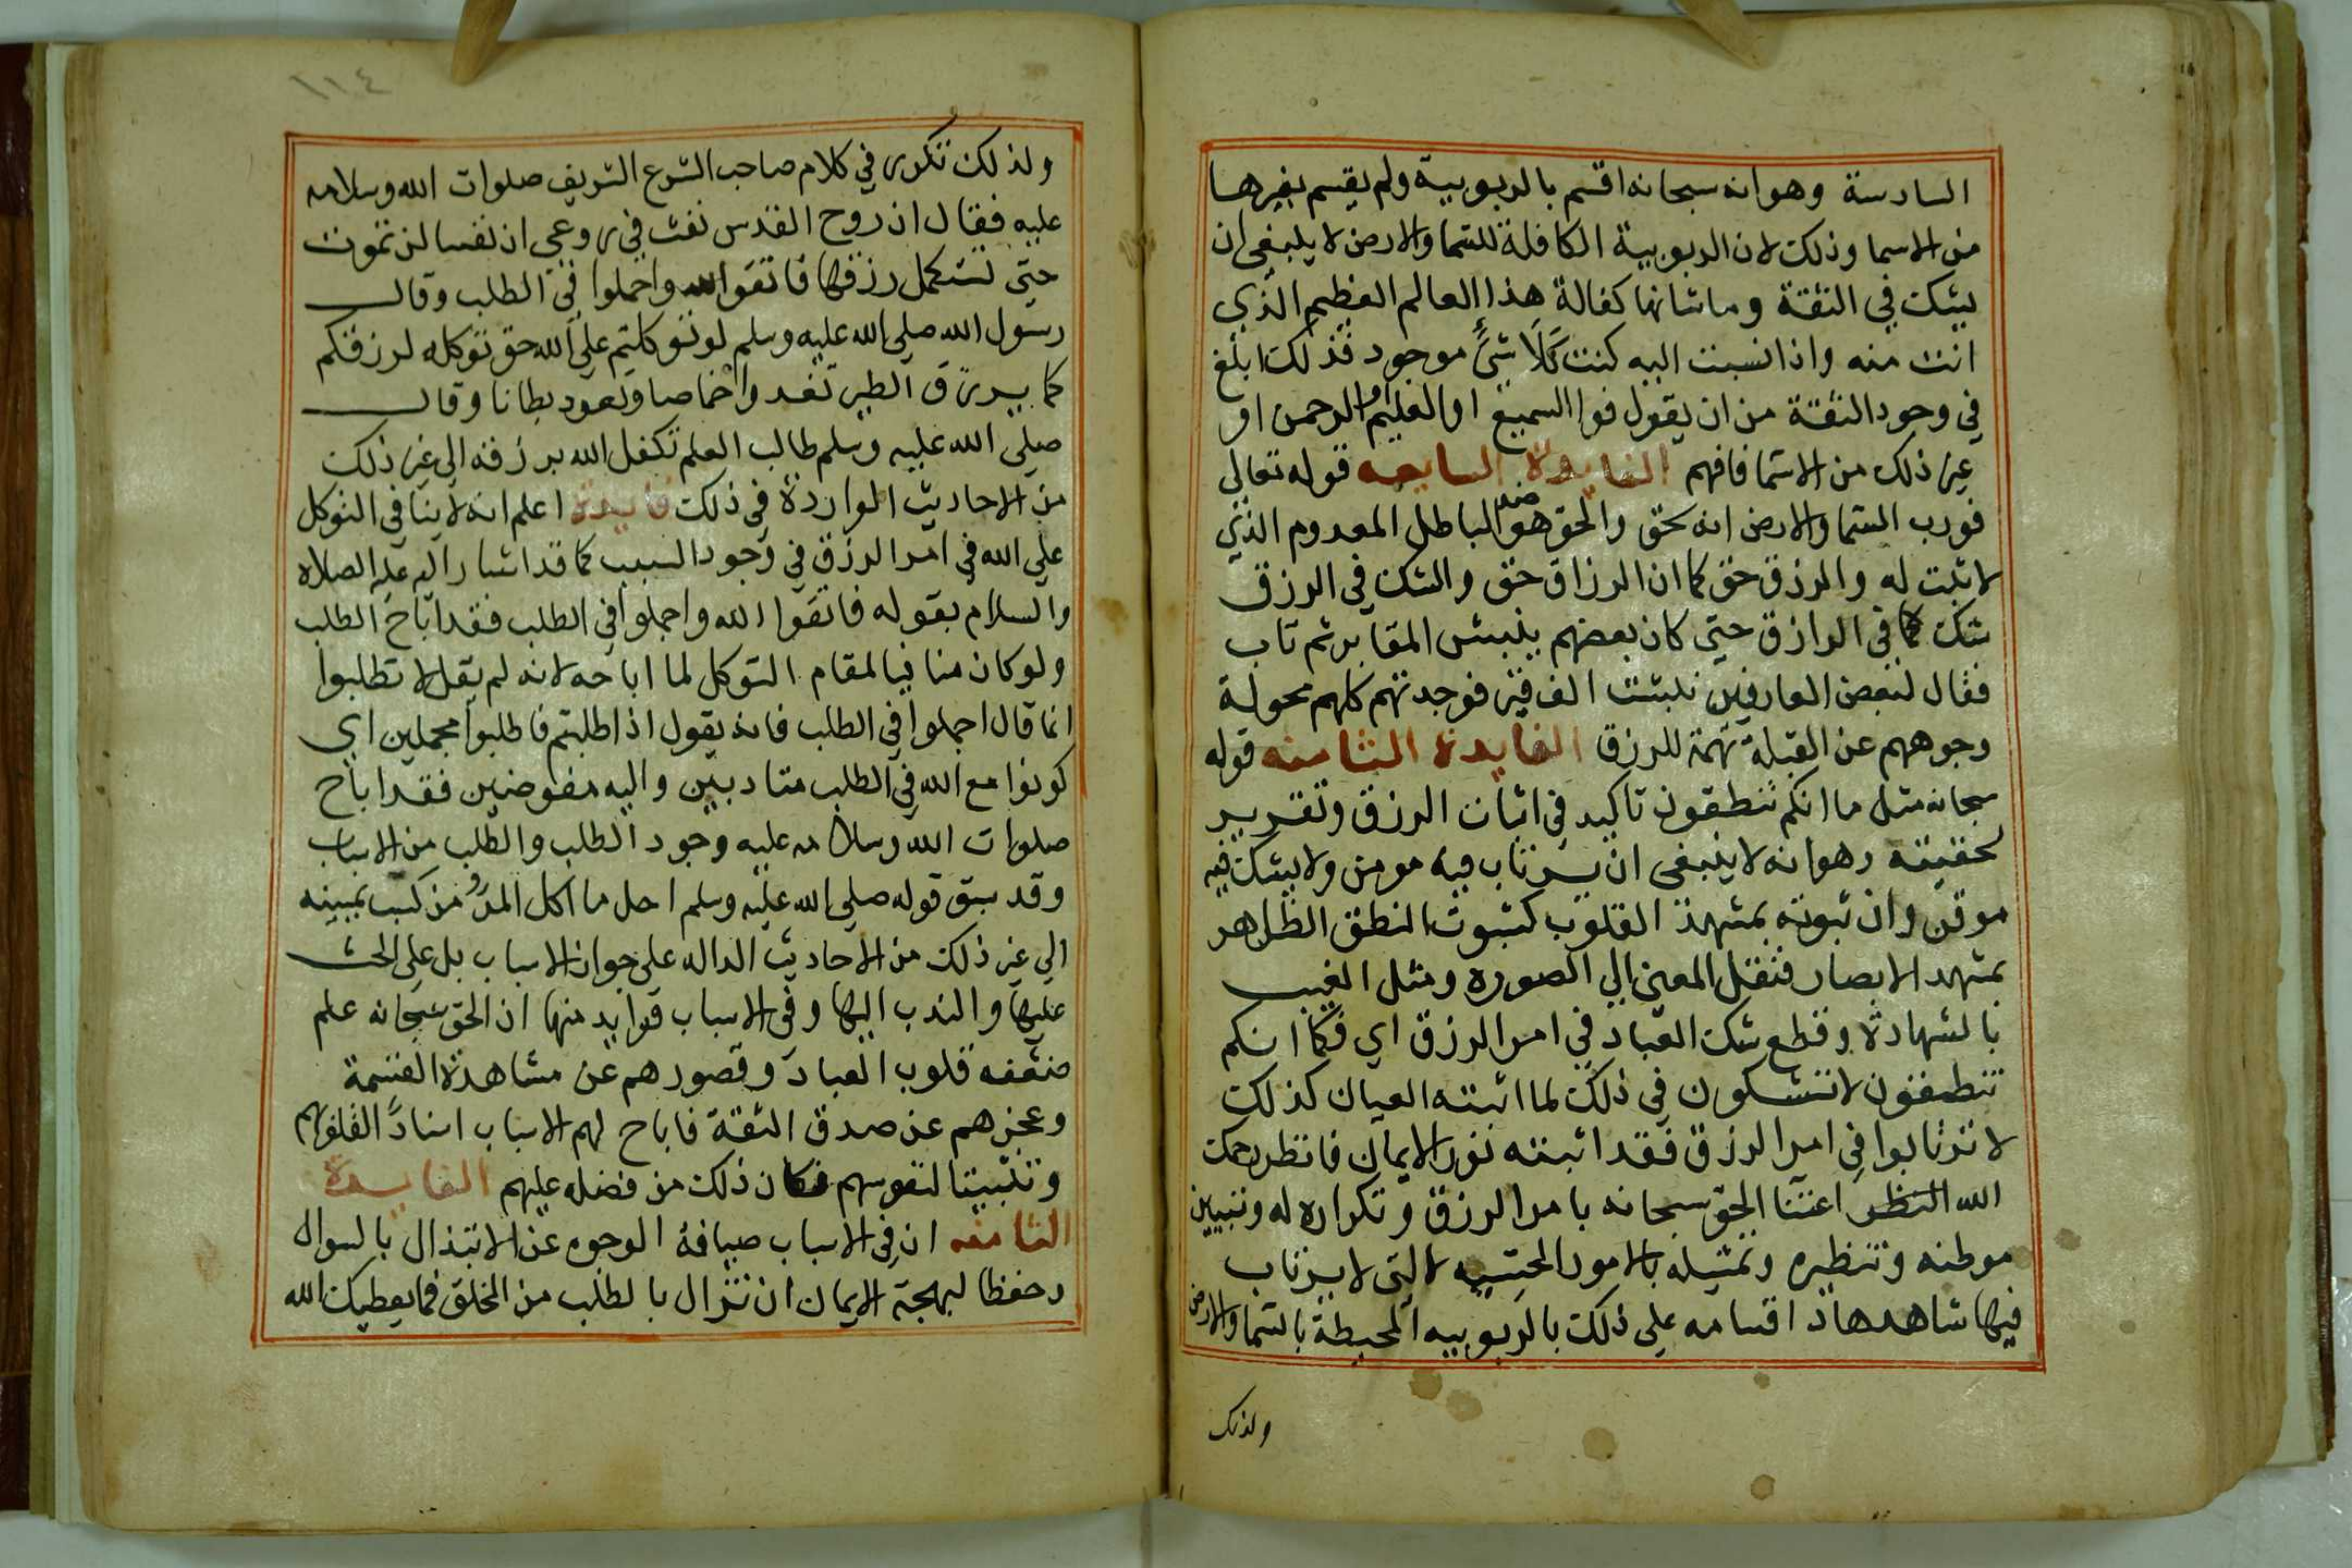 السادسة وهوانه سبحانه اقسم بالربوبية ولم يقسم بغيرها
من الاسما وذلك لان الربوبية الكافلة للسما والارض لا ينبغي ان
يشك في الثقة وما شانها كفالة هذا العالم العظيم الذي
انت منه واذا نسبت اليه كنت كلا شئ موجود فذلك ابلغ
في وجود الثقة من ان يقول فوا السميع او العليم او الرحمن او
غير ذلك من الاسما فافهم الفايدة السابعه قوله تعالى
فورب السما والارض انه لحق والحق هو ضد الباطل المعدوم الذي
لا ثبت له والرزق حق كما ان الرزاق حق والشك في الرزق
شك في الرازق حتي كان بعضهم ينبش المقابر ثم تاب
فقال لبعض العارفين نبشت الف قبر فوجدتهم كلهم محولة
وجوههم عن القبلة تهمة للرزق الفايدة الثامنه قوله
سبحانه مثل ما انكم تنطقون تاكيد في اثبات الرزق وتقرير
لحقيقته وهوانه لا ينبغي ان يرتاب فيه مومن ولا يشك فيه
موقن وان ثبوته بمشهد القلوب كثبوت المنطق الظاهر
بمشهد الابصار فنقل المعنى الي الصوره ومثل الغيب
بالشهادة وقطع شك العباد في امر الرزق اي فكما انكم
تنطقون لا تشكون في ذلك لما اثبته العيان كذلك
لا ترتابوا في امر الرزق فقد اثبته نور الايمان فانظر رحمك
الله النظر اعتنا الحق سبحانه بامر الرزق وتكراره له وتبيين
موطنه وتنظيره وتمثيله بالامور الحسيه التي لا يرتاب
فيها شاهدها واقسامه على ذلك بالربوبيه المحيطة بالسما والارض
ولذلك
١١٤
ولذلك تكرر في كلام صاحب الشرع الشريف صلوات الله وسلامه
عليه فقال ان روح القدس نفث في روعي ان نفسا لن تموت
حتي تستكمل رزقها فاتقوا الله واجملوا في الطلب وقال
رسول الله صلى الله عليه وسلم لو توكلتم على الله حق توكله لرزقكم
كما يرزق الطير تغدوا خماصا وتعود بطانا وقال
صلى الله عليه وسلم طالب العلم تكفل الله برزقه الى غير ذلك
من الاحاديث الواردة في ذلك فايدة اعلم انه لا ينافي التوكل
على الله في امر الرزق في وجود السبب كما قد اشار اليه عليه الصلاه
والسلام بقوله فاتقوا الله واجملوا في الطلب فقد اباح الطلب
ولو كان منافيا لمقام التوكل لما اباحه لانه لم يقل لا تطلبوا
انما قال اجملوا في الطلب فانه يقول اذا طلبتم فاطلبوا مجملين اي
كونوا مع الله في الطلب متادبين واليه مفوضين فقد اباح
صلوات الله وسلامه عليه وجود الطلب والطلب من الاسباب
وقد سبق قوله صلى الله عليه وسلم احل ما اكل المرؤ من كسب يمينه
الى غير ذلك من الاحاديث الداله على جواز الاسباب بل على الحث
عليها والندب اليها وفي الاسباب فوايد منها ان الحق سبحانه علم
ضعف قلوب العباد وقصورهم عن مشاهدة القسمة
وعجزهم عن صدق الثقة فاباح لهم الاسباب اسنادا لقلوبهم
وتثبيتا لنفوسهم فكان ذلك من فضله عليهم الفايدة
الثامنه ان في الاسباب صيافة الوجوه عن الابتذال بالسوال
وحفظا لبهجة الايمان ان تزال بالطلب من الخلق فما يعطيك الله